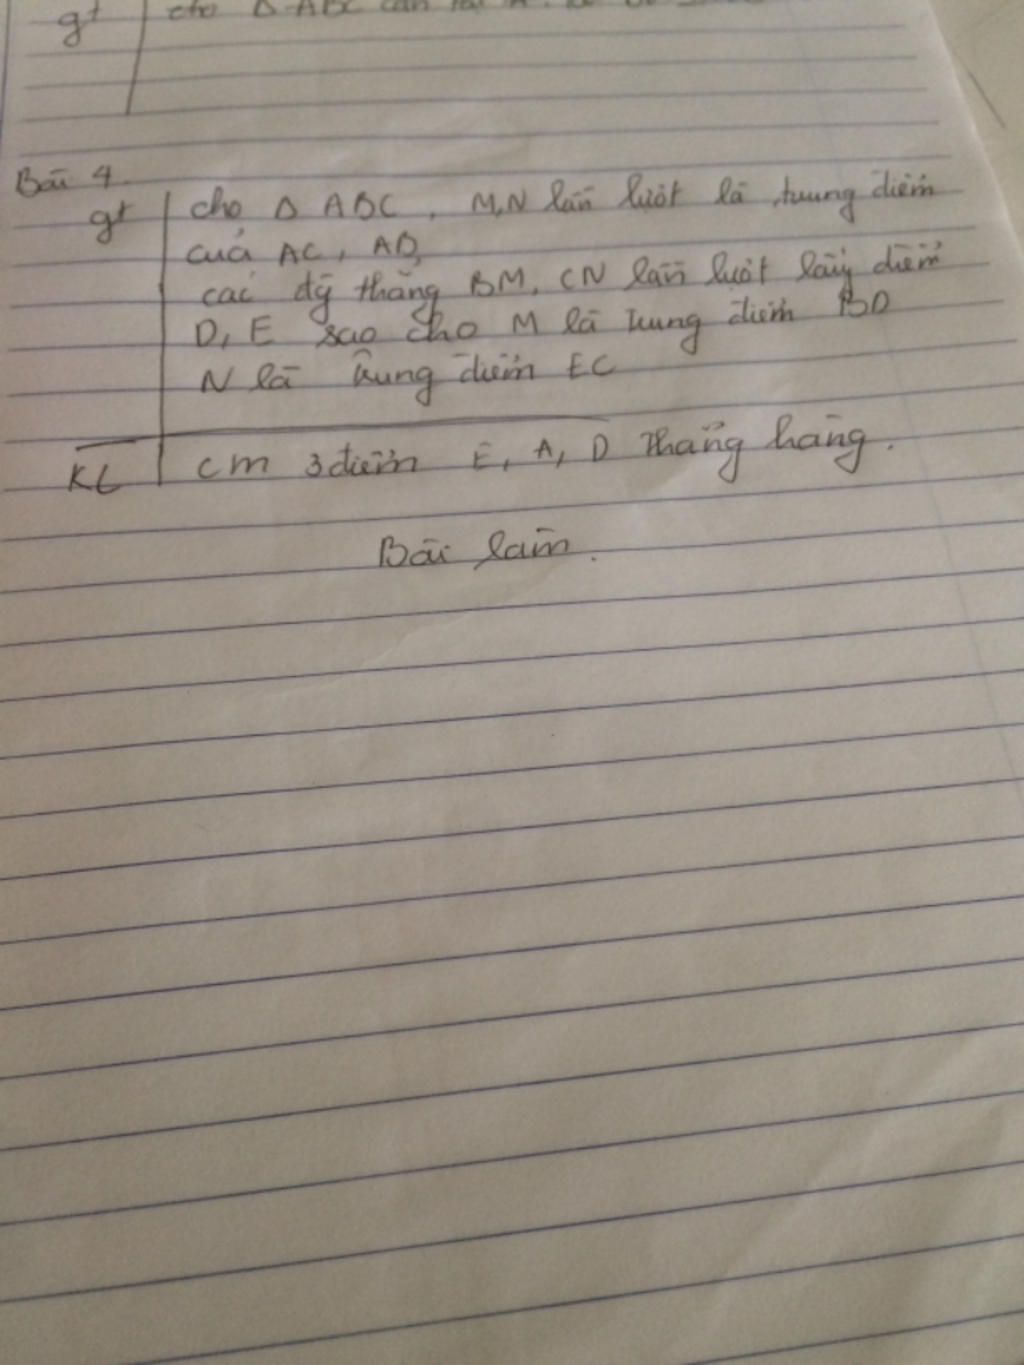 gt cho Δ ABC cân tại A.
Bài 4
gt cho Δ ABC, M,N lần lượt là trung điểm
của AC, AB,
các đg thẳng BM, CN lần lượt lấy điểm
D, E sao cho M là trung điểm BD
N là trung điểm EC
KL cm 3 điểm E, A, D thẳng hàng.
Bài làm.